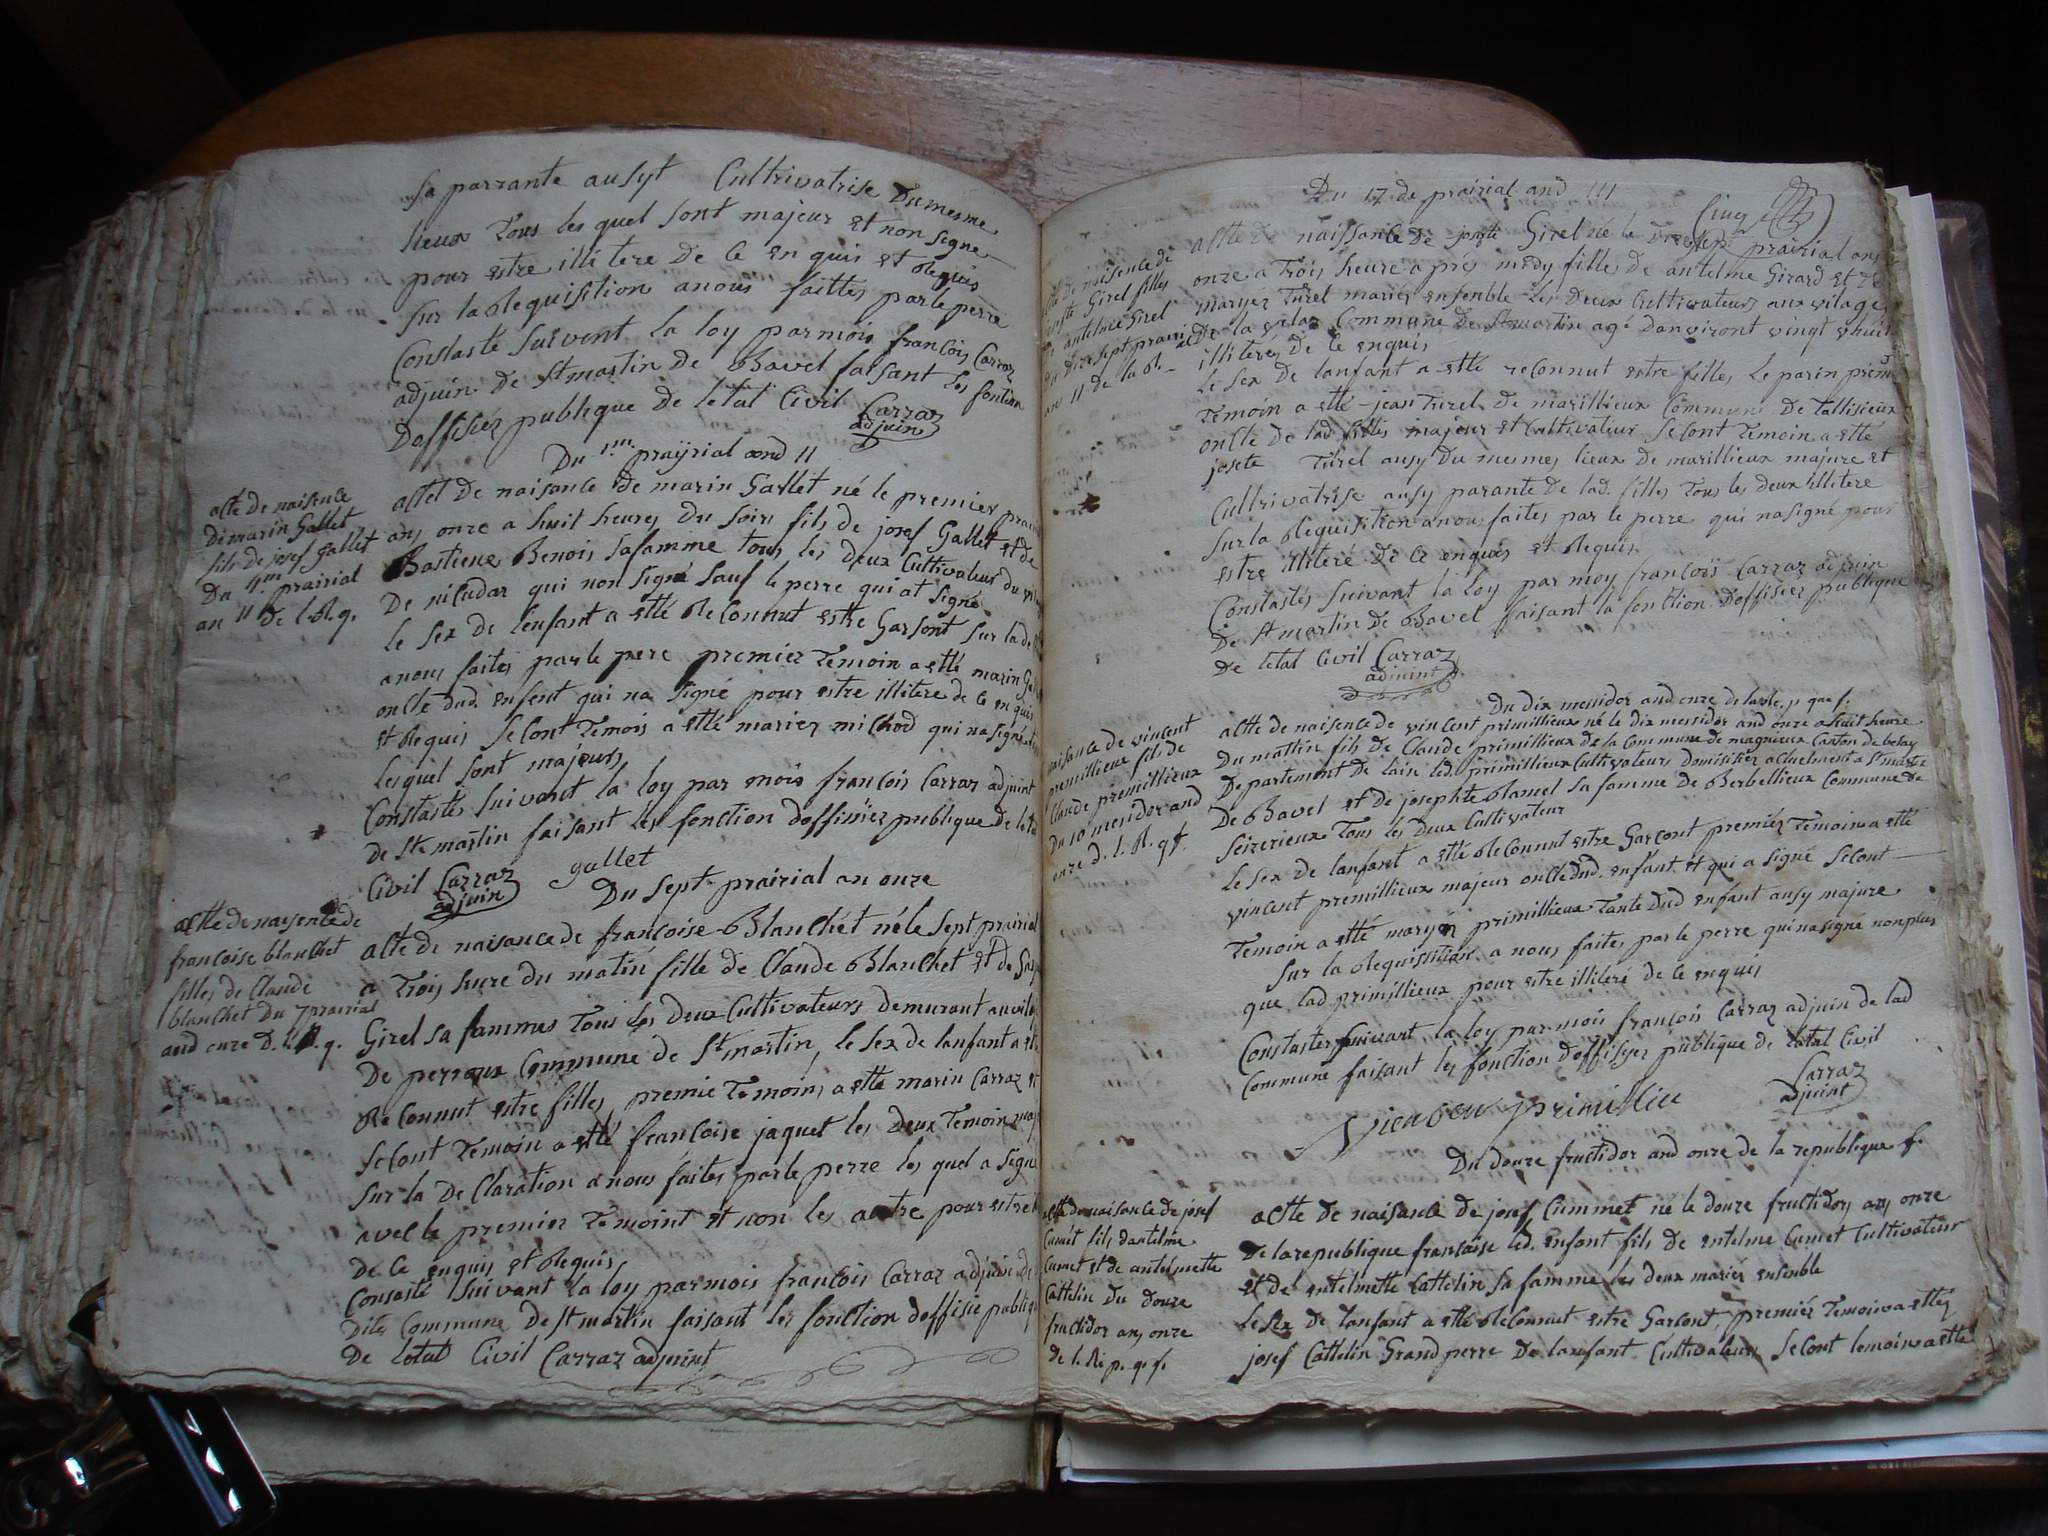 sa parrante ausyt Cultrivatrise Dumesme
lieux Tous les quel sont majeur et non signe
pour estre illitere de ce en quis et Requis
sur la Requisition a nous faittes par le perre
Constasté suivent la loy par mois françois Carraz
adjuin de St martin de Bavel faisant les fontion
Doffisiér publique de létat Civil Carraz
adjuin
Du 1.m praÿrial and 11
acte de naisence
De marin Gallet
fils de josef Gallet
Du 1.m prairial
an 11 de l. R. q.
actet de naisance de marin Gallet né le premier
an onze a huit heures Du soir fils de josef Gallet et de
Bastiene Benois safamme tous les deux Cultivateur du
De qui non signé sauf le perre qui at signé
le sex de lenfant a etté ReConnut estre Garsont sur la de
anous faites par le pere premier Temoin a etté marin
oncle dud. enfent qui na signé pour estre illitere de ce en quis
et Requis seCont Temois a etté mariez michod qui na signé
lesquel sont majeurs
Constastés suivant la loy par mois françois Carraz adjuint
de St martin faisant les fonction doffisiér publique de
Civil Carraz gallet
adjuin
Du sept prairial an onze
actte de naisence de
francoise blanchet
filles de Claude
blanchet Du 7 prairial
and onze D. l. R. q.
acte de naisance de françoise Blanchet né le sept prairial
a Trois heure du matin fille de Claude Blanchet et de
Girel sa fammes Tous les deux Cultivateurs demurant au
De perroux Commune de St martin, le sex de lanfant a
ReConnut estre filles, premie Temoins a etté marin Carraz et
seCont Temoin a etté francoise jaquet les Deux Temoin
sur la DeClaration a nous faites par le perre les quel a signe
avec le premier Temoint et non les autre pour estre
De Ce enquis et Requis
Consasté suivant la loy par mois françois Carraz adjuin de
Dite Commune De st martin faisant les fonction doffisie publiq
De letat Civil Carraz adjuint
Du 17 de prairial and 111
Cinq
naisence de
Girel filles
antelme Girel
dix sept prairi
an 11 de la R.
actte de naissance de josete Girel né le prairial ans
onze a Trois heure a prés midy fille de antelme Girard et de
maryés Turel mariés ensenble les deux Cultivateurs aux vilage
De la Commune De St martin agé danviront vingt
illiteres de Ce enquis
Le sex de lanfant a etté reConnut estre filles, le parin
Témoin a etté jean Turel de marillieux Commune De Tallisieux
oncle de lad. filles majeur et Cultivateur seCont Temoin a etté
josete Turel ausy Du mesmes lieux de marillieux majure et
Cultrivatrise ausy parante de lad. filles Tous les deux illitere
sur la Requisition a nous faites par le perre qui na signé pour
estre illiteré de Ce enquis et Requis
Constastés suivant la loy par moy françois Carraz adjuin
De St martin De Bavel faisant la fonction Doffisiez publique
De letat Civil Carraz
adjuint
Du dix mesidor and onze de
naisance de vincent
premillieux fils de
Claude premillieux
Du 10 mesidor and
onze d. l. R. q f.
actte de naisence de vincent primillieux né le dix messidor and onze a huit heure
Du mattin fils de Claude primillieux De la Commune de magnieux Canton de belay
Departement de lain led. primillieux Cultivateurs Domisitiér actuelment a St martin
De Bavel et de josephte Ramel sa famme de Berbellieux Commune de
Seizerieux Tous les Deux Cultivateur
Le sex de lanfant a etté ReConnut estre Garcont premiér Temoin a etté
vincent premillieux majeur oncle dud. enfant et qui a signé seCont
Temoin a etté maryer primillieux Tante Dud enfant ausy majure
Sur la Requisition a nous faites par le perre qui na signé non plus
que lad primillieux pour estre illiteré de Ce enquis
Constaster suivant la loy par mois françois Carraz adjuin de lad
Commune faisant les fonction doffisyez publique de létat Civil
Carraz
adjuint
primillieu
Du douze fructidor and onze de la republique f.
actte de naisance de josef
Cumet fils dantelme
Cumet et de antelmette
Cattelin du douze
fructidor an onze
de l. Rep. q. f.
actte de naisance de josef Cummet né le douze fructidor an onze
De la republique francaise led. enfant fils de entelme Cumet Cultivateur
et de entelmette Cattelin sa famme les deux mariés ensenble
le sex de lanfant a etté ReConnut estre Garcont, premiér Temoin a ettés
josef Cattelin Grand perre De lanfant Cultivateur seCont temoin a etté